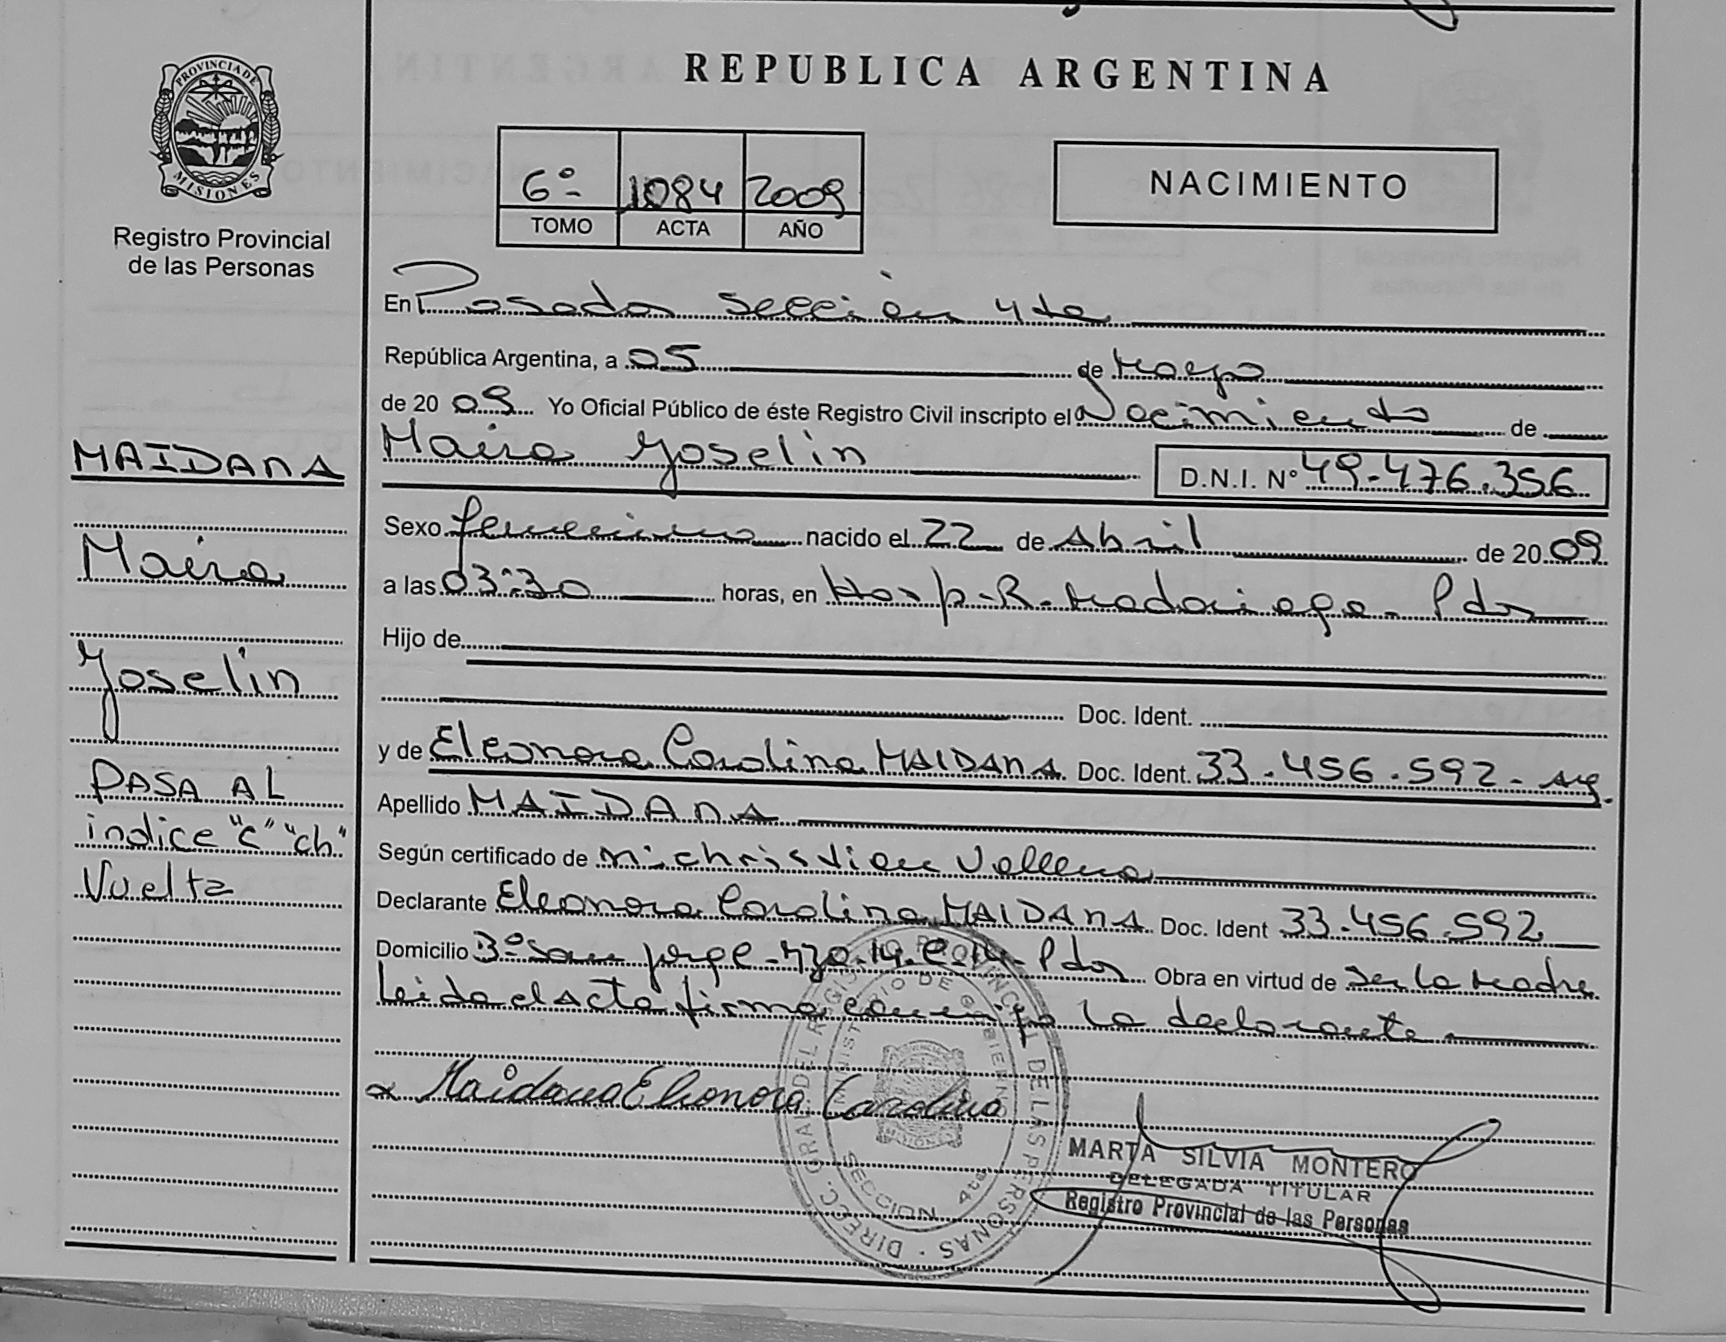 REPUBLICA ARGENTINA
PROVINCIA DE
MISIONES
Registro Provincial
de las Personas
6º 1084 2009
TOMO ACTA AÑO
NACIMIENTO
En Posadas sección 4ta
República Argentina, a 05 de Mayo
de 20 09 Yo Oficial Público de éste Registro Civil inscripto el Nacimiento de
Maira Yoselin D.N.I. Nº 49-476.356
Sexo femenino nacido el 22 de Abril de 20 09
a las 03:30 horas, en Hosp-R-Madariaga- Pdas
Hijo de
Doc. Ident.
y de Eleonora Carolina MAIDANA Doc. Ident. 33-456.592- Arg.
Apellido MAIDANA
Según certificado de Christian
Declarante Eleonora Carolina MAIDANA Doc. Ident 33.456.592
Domicilio San Jorge Pdas Obra en virtud de ser la madre
Leida el acta firma conmigo la declarante
Maidana Eleonora Carolina
MARTA SILVIA MONTERO
DELEGADA TITULAR
Registro Provincial de las Personas
DIRECC. GRAL. DEL REGISTRO PROVINCIAL DE LAS PERSONAS
MINISTERIO DE GOBIERNO
SECCION 4ta
MAIDANA
Maira
Yoselin
PASA AL
indice "C" "ch"
Vuelta